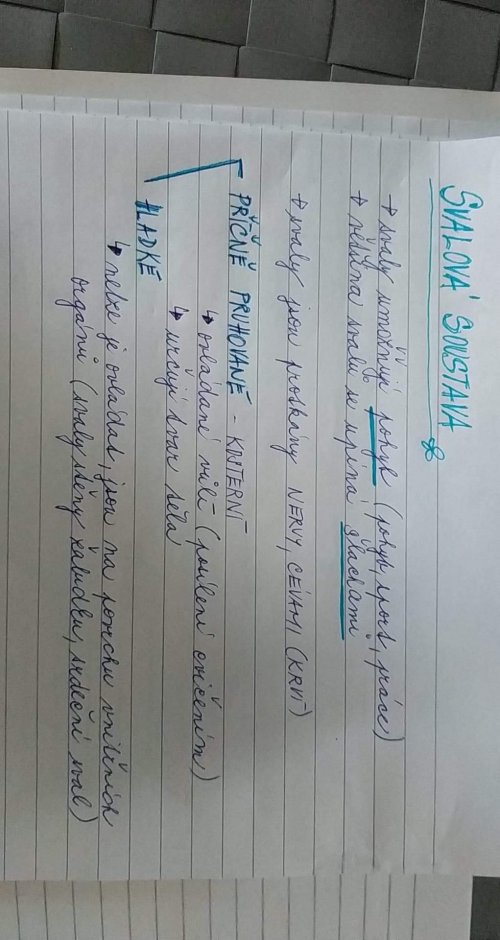 SVALOVÁ SOUSTAVA
→ svaly umožňují pohyb (pohyb, sport, práce)
→ většina svalů se upíná šlachami
→ svaly jsou protkány NERVY, CÉVAMI (KRVÍ)
PŘÍČNĚ PRUHOVANÉ - KOSTERNÍ
↳ ovládání vůlí (posílení cvičením)
↳ určují tvar těla
HLADKÉ
↳ nelze je ovládat, jsou na povrchu vnitřních
orgánů (svaly stěny žaludku, srdeční sval)